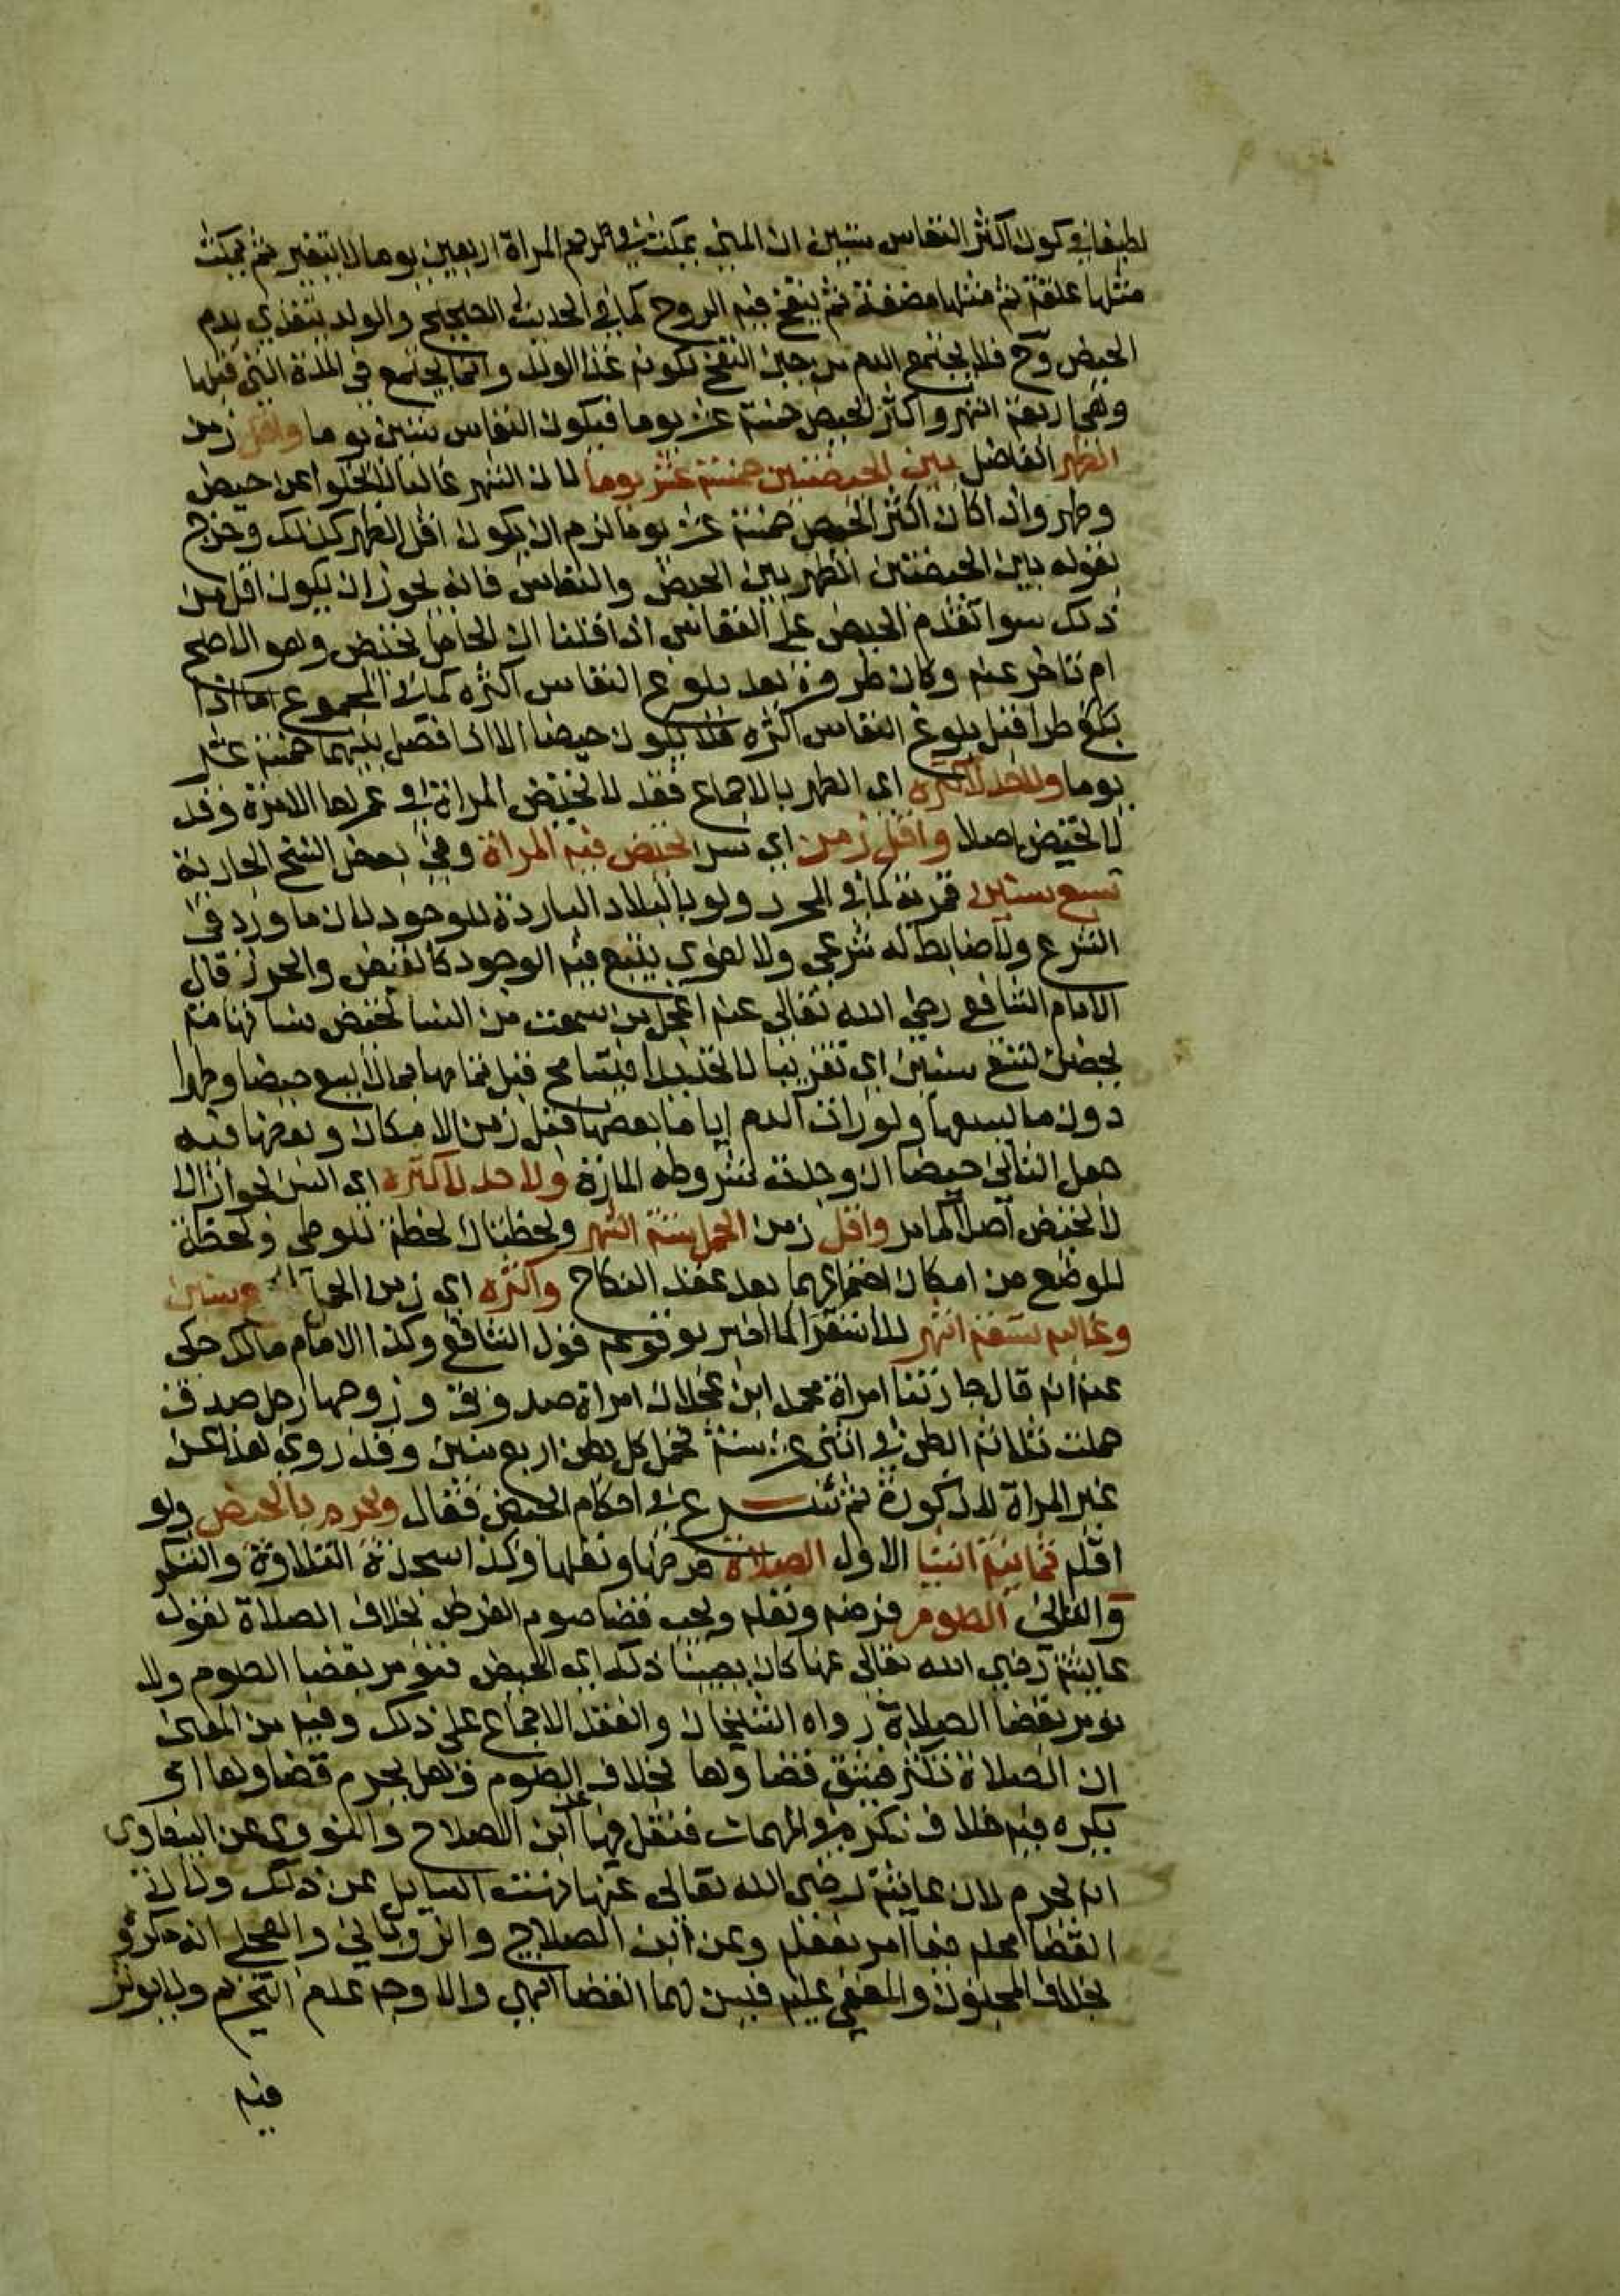 لطيفا في كون اكثر النفاس ستين ان المني يمكث في الرحم المراة اربعين يوما لا يتغير ثم يمكث
مثلها علقة ثم مثلها مضغة ثم ينفخ فيه الروح كما في الحديث الصحيح والولد يتغذي بدم
الحيض وح فلا يجتمع الدم من حين النفخ لكونه غذا الولد وانما يجتمع في المدة التي قبلها
وهي اربعة اشهر واكثر الحيض خمسة عشر يوما فيكون النفاس ستين يوما واقل زمن
الطهر الفاصل بين الحيضتين خمسة عشر يوما لان الشهر غالبا لا يخلوا عن حيض
وطهر واذا كان اكثر الحيض خمسة عشر يوما لزم ان يكون اقل الطهر كذلك وخرج
بقوله بين الحيضتين الطهر بين الحيض والنفاس فانه يجوز ان يكون اقل من
ذلك سوا تقدم الحيض على النفاس اذا قلنا ان الحامل تحيض وهو الاصح
ام تاخر عنه وكان طروه بعد بلوغ النفاس اكثره كما في المجموع اما اذا
طرا قبل بلوغ النفاس اكثره فلا يكون حيضا الا اذا فصل بينهما خمسة عشر
يوما ولا حد لاكثره اي الطهر بالاجماع فقد لا تحيض المراة في عمرها الا مرة وقد
لا تحيض اصلا واقل زمن اي سن تحيض فيه المراة وفي بعض النسخ الجارية
تسع سنين قمرية كما في المحرر ولو بالبلاد الباردة للوجود لان ما ورد في
الشرع ولا ضابط له شرعي ولا لغوي يتبع فيه الوجود كالقبض والحرز قال
الامام الشافعي رضي الله تعالى عنه اعجل من سمعت من النسا تحيض نسا تهامة
يحضن لتسع سنين اي تقريبا لا تحديدا فيتسامح قبل تمامها بما لا يسع حيضا وطهرا
دون ما يسعهما ولو رات الدم اياما بعضها قبل زمن الامكان وبعضها فيه
جعل الثاني حيضا ان وجدت شروطه المارة ولا حد لاكثره اي السن لجواز ان
لا تحيض اصلا كما مر واقل زمن الحمل ستة اشهر ولحظتان لحظة للوطي ولحظة
للوضع من امكان اجتماعهما بعد عقد النكاح واكثره اي زمن الحمل اربع سنين
وغالبه تسعة اشهر للاستقرا كما اخبر بوقوعه قول الشافعي وكذا الامام مالك حكي
عنه انه قال جارتنا امراة محمد ابن عجلان امراة صدوق وزوجها رجل صدق
حملت ثلاثة ابطن في اثني عشر سنة تحمل كل بطن اربع سنين وقد روي هذا عن
غير المراة المذكورة ثم شرع في احكام الحيض فقال ويحرم بالحيض ولو
اقله ثمانية اشيا الاول الصلاة فرضها ونفلها وكذا سجدة التلاوة والشكر
والثاني الصوم فرضه ونفله ويجب قضا صوم الفرض بخلاف الصلاة لقول
عايشة رضي الله تعالى عنها كان يصيبنا ذلك اي الحيض فنومر بقضا الصوم ولا
نومر بقضا الصلاة رواه الشيخان وانعقد الاجماع على ذلك وفيه من المعنى
ان الصلاة تكثر فيشق قضاوها بخلاف الصوم وهل يحرم قضاوها او
يكره فيه خلاف ذكره في المهمات فنقل فيها عن ابن الصلاح والنووي عن البيضاوي
انه يحرم لان عايشة رضي الله تعالى عنها نهت السايل عن ذلك ولان
القضا محله فيما امر بفعله وعن ابن الصلاح والروياني والعجلي انه مكروه
بخلاف المجنون والمغمى عليه فيسن لهما القضا انتهى والاوجه عدم التحريم ولا يوثر
فيه